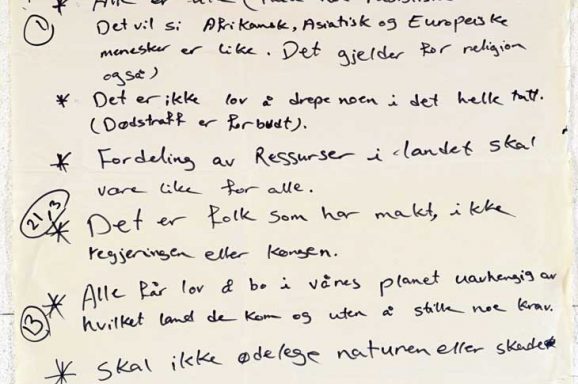 * Alle er
① Det vil si Afrikansk, Asiatisk og Europeiske
menesker er like. Det gjelder for religion
også)
* Det er ikke lov å drepe noen i det helle tatt.
(Dødstraff er forbudt).
* Fordeling av Ressurser i landet skal
være like for alle.
21,3
* Det er folk som har makt, ikke
regjeringen eller kongen.
* Alle får lov å bo i vånes planet uavhengig av
13 hvilket land de kom og uten å stille noe krav.
* Skal ikke ødelege naturen eller skade